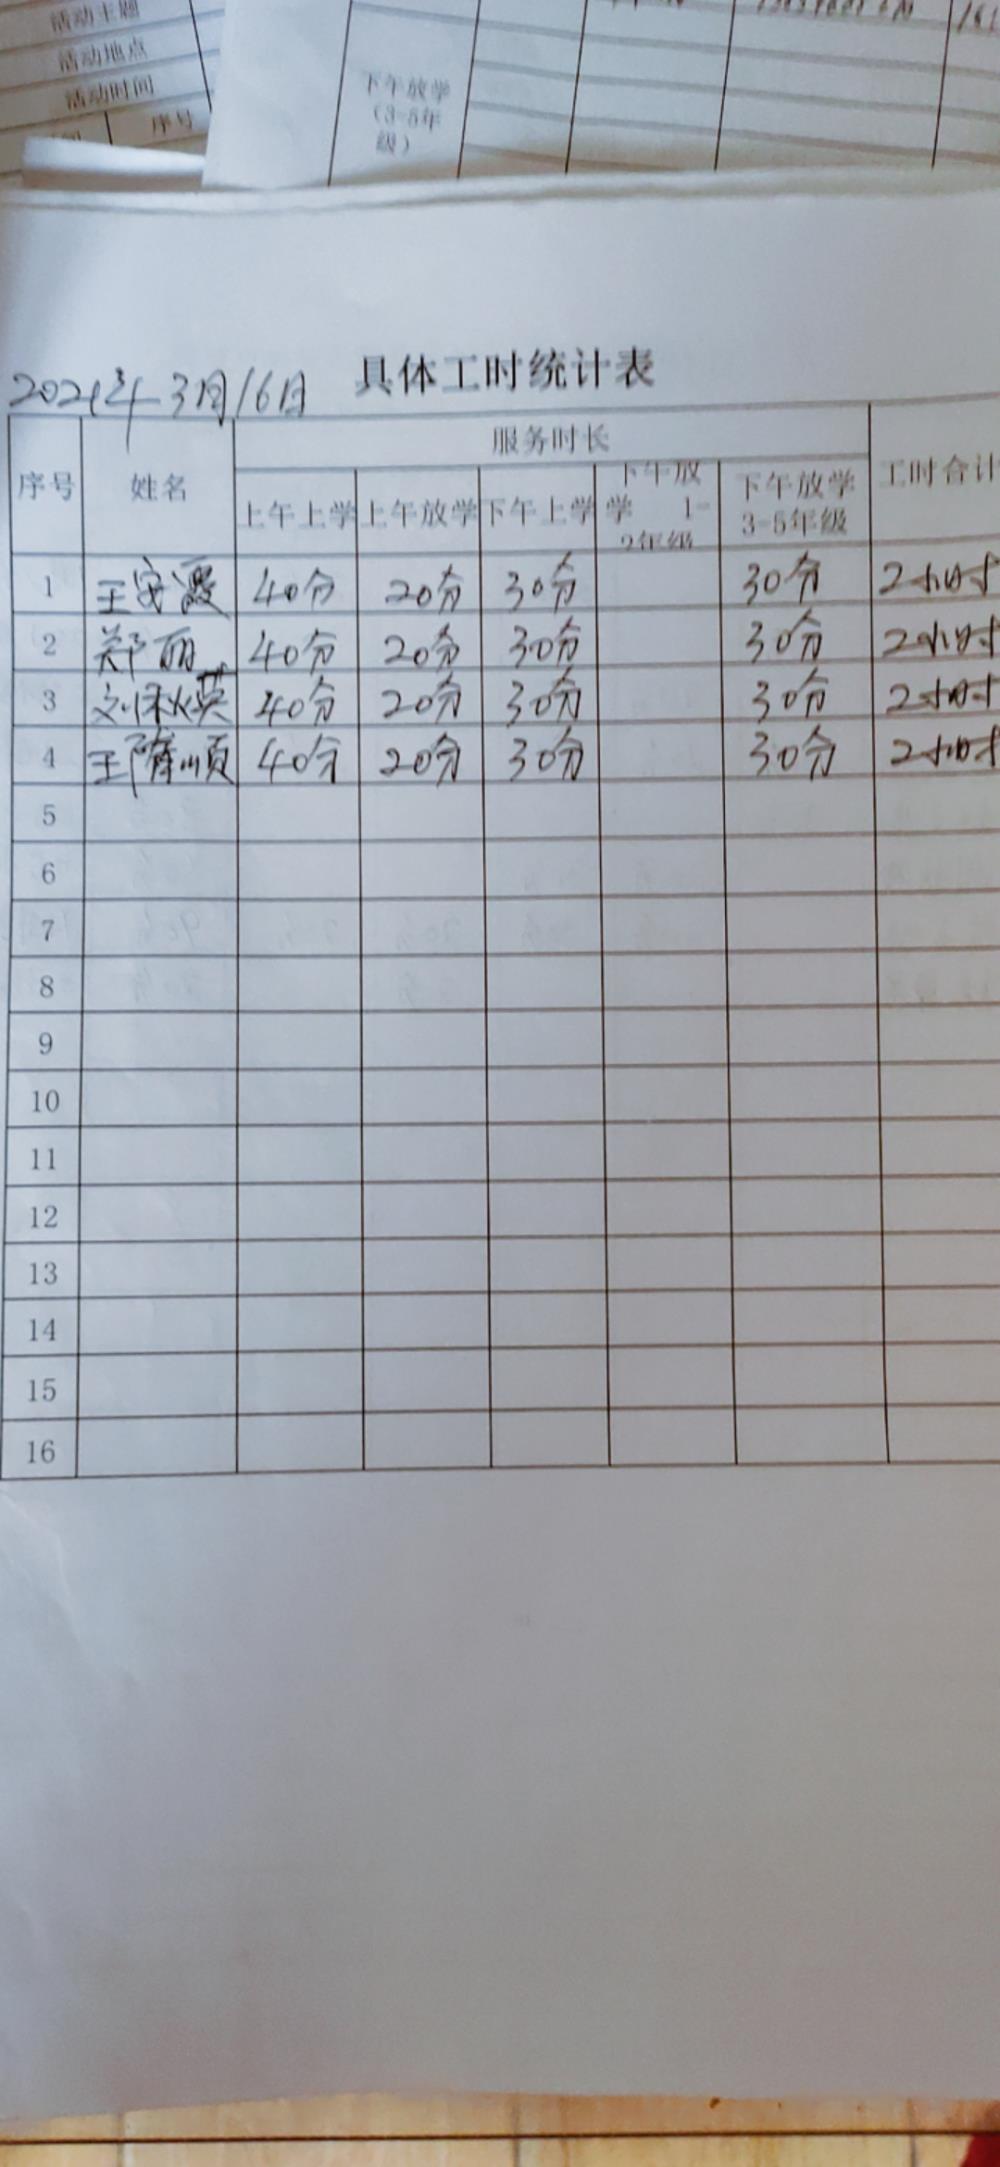 活动主题
活动地点
活动时间
序号
下午放学
（3-5年
级）
具体工时统计表
2021年3月16日
序号 姓名 服务时长 工时合计
上午上学 上午放学 下午上学 下午放学 1-2年级 下午放学 3-5年级
1 王安霞 40分 20分 30分 30分 2小时
2 郑丽 40分 20分 30分 30分 2小时
3 刘秋英 40分 20分 30分 30分 2小时
4 王 顺 40分 20分 30分 30分 2小时
5
6
7
8
9
10
11
12
13
14
15
16